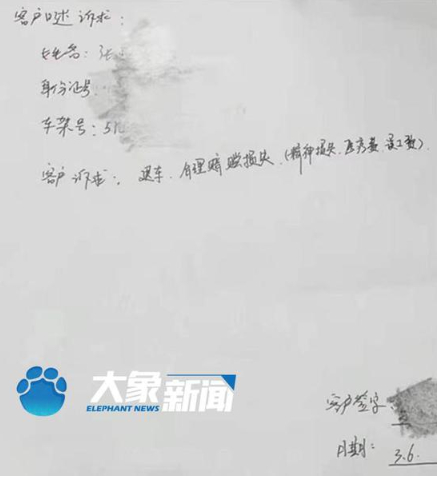 客户口述诉求:
姓名:张
身份证号:
车架号:5
客户诉求:退车、合理赔偿损失(精神损失、医疗费、误工费).
大象新闻
ELEPHANT NEWS
客户签字:
日期:3.6.